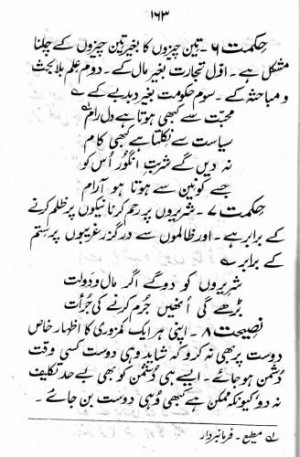 ۱۶۳
حکمت ۶ ۔ تین چیزوں کا بغیر تین چیزوں کے چلنا
مشکل ہے ۔ اوّل تجارت بغیر مال کے ۔ دوم علم بلا بحث
و مباحثہ کے ۔ سوم حکومت بغیر دبدبے کے ؎
محبّت سے کبھی ہوتا ہے دل رام ؎۱
سیاست سے نکلتا ہے کبھی کام
نہ دیں گے شربتِ انگور اُس کو
جسے کونین سے ہوتا ہو آرام
حکمت ۷ ۔ شریروں پر رحم کرنا نیکوں پر ظلم کرنے
کے برابر ہے ۔ اور ظالموں سے درگزر غریبوں پر ستم
کے برابر ؎
شریروں کو دو گے اگر مال و دولت
بڑھے گی اُنھیں جُرم کرنے کی جُرأت
نصیحت ۸ ۔ اپنی ہر ایک کمزوری کا اظہار خاص
دوست پر بھی نہ کرو کہ شاید وہی دوست کسی وقت
دُشمن ہو جائے ۔ ایسے ہی دُشمن کو بھی بے حد تکلیف
نہ دو کیونکہ ممکن ہے کبھی وُہی دوست بن جائے ۔
؎۱ مطیع ۔ فرمانبردار